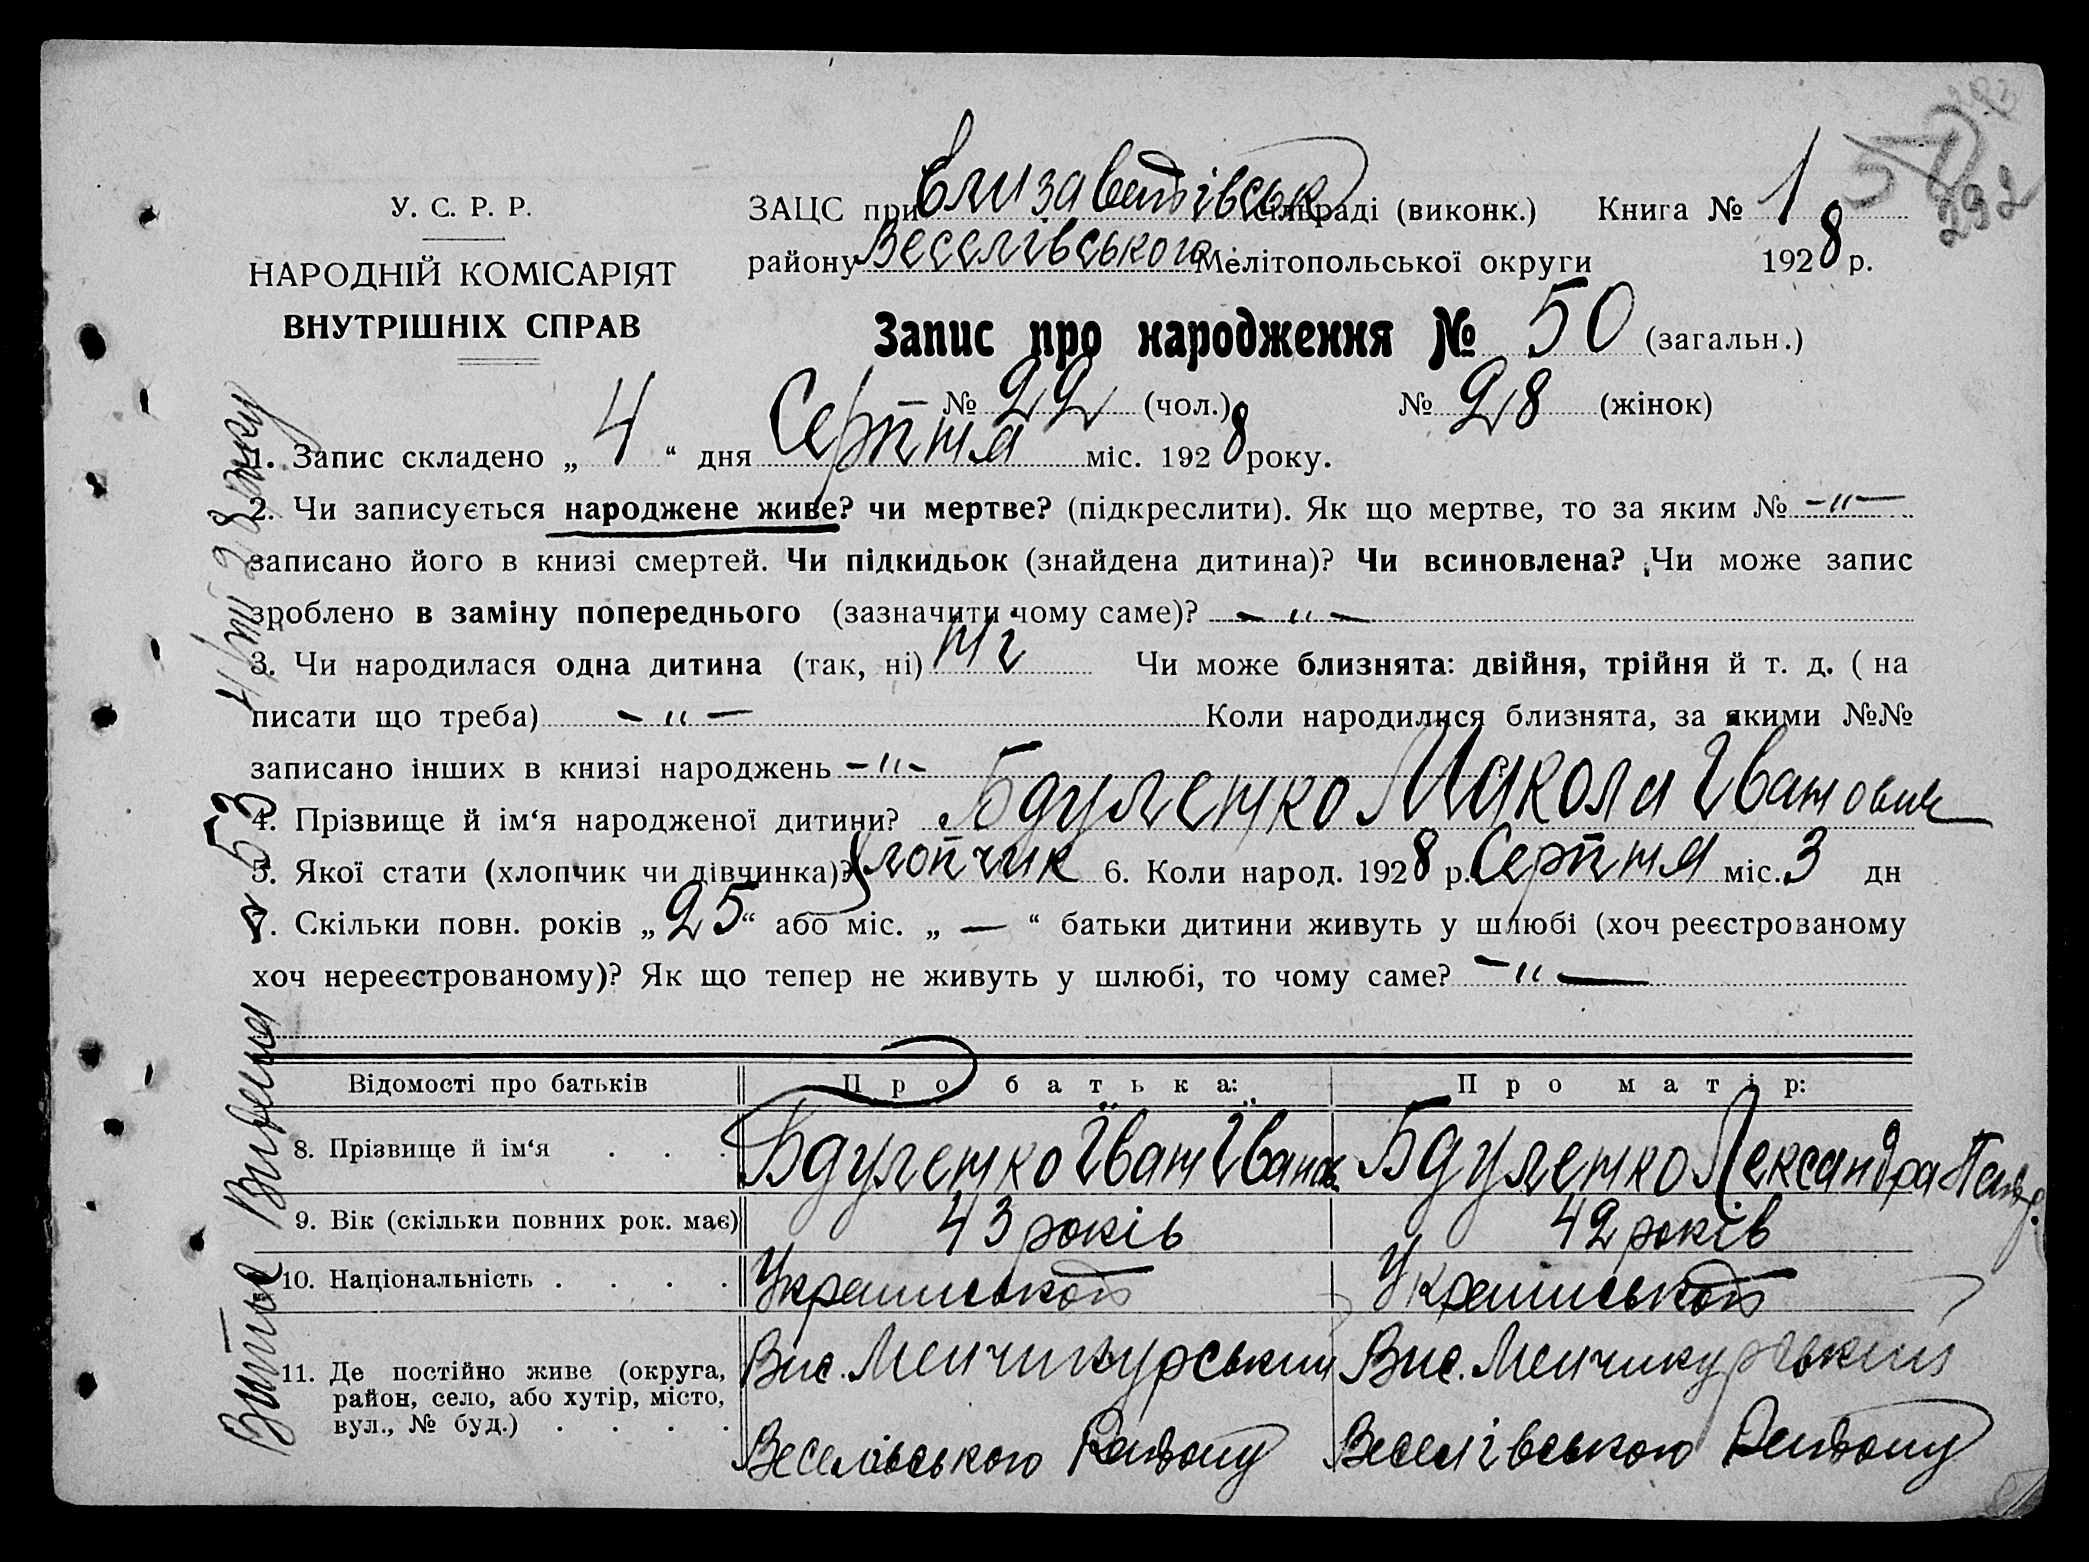 292
У. С. Р. Р.
НАРОДНІЙ КОМІСАРІЯТ
ВНУТРІШНІХ СПРАВ
ЗАЦС при Єлизаветівськ сільраді (виконк.) Книга № 1
району Веселівського Мелітопольської округи 1928 р.
Запис про народження № 50 (загальн.)
№ 22 (чол.) № 28 (жінок)
1. Запис складено „ 4 “ дня Серпня міс. 1928 року.
2. Чи записується народжене живе? чи мертве? (підкреслити). Як що мертве, то за яким № -"-
записано його в книзі смертей. Чи підкидьок (знайдена дитина)? Чи всиновлена? Чи може запис
зроблено в заміну попереднього (зазначити чому саме)? - " -
3. Чи народилася одна дитина (так, ні) Чи може близнята: двійня, трійня й т. д. ( на
писати що треба) - " - Коли народилися близнята, за якими №№
записано інших в книзі народжень -"-
4. Прізвище й ім‘я народженої дитини? Бдуленко Микола Іванович
5. Якої стати (хлопчик чи дівчинка)? Хлопчик 6. Коли народ. 1928 р. Серпня міс. 3 дн
7. Скільки повн. років „ 25 “ або міс. „ — “ батьки дитини живуть у шлюбі (хоч реєстрованому
хоч нереєстрованому)? Як що тепер не живуть у шлюбі, то чому саме? - " -
Відомості про батьків Про батька: Про матір:
8. Прізвище й ім‘я . . . Бдуленко Іван Іванов. Бдуленко Лександра
9. Вік (скільки повних рок. має) 43 років 42 років
10. Національність . . . .
11. Де постійно живе (округа, Вис. Менчикурський Вис. Менчикурський
район, село, або хутір, місто,
вул., № буд.) . . . . Веселівського Району Веселівського Району
№ 53